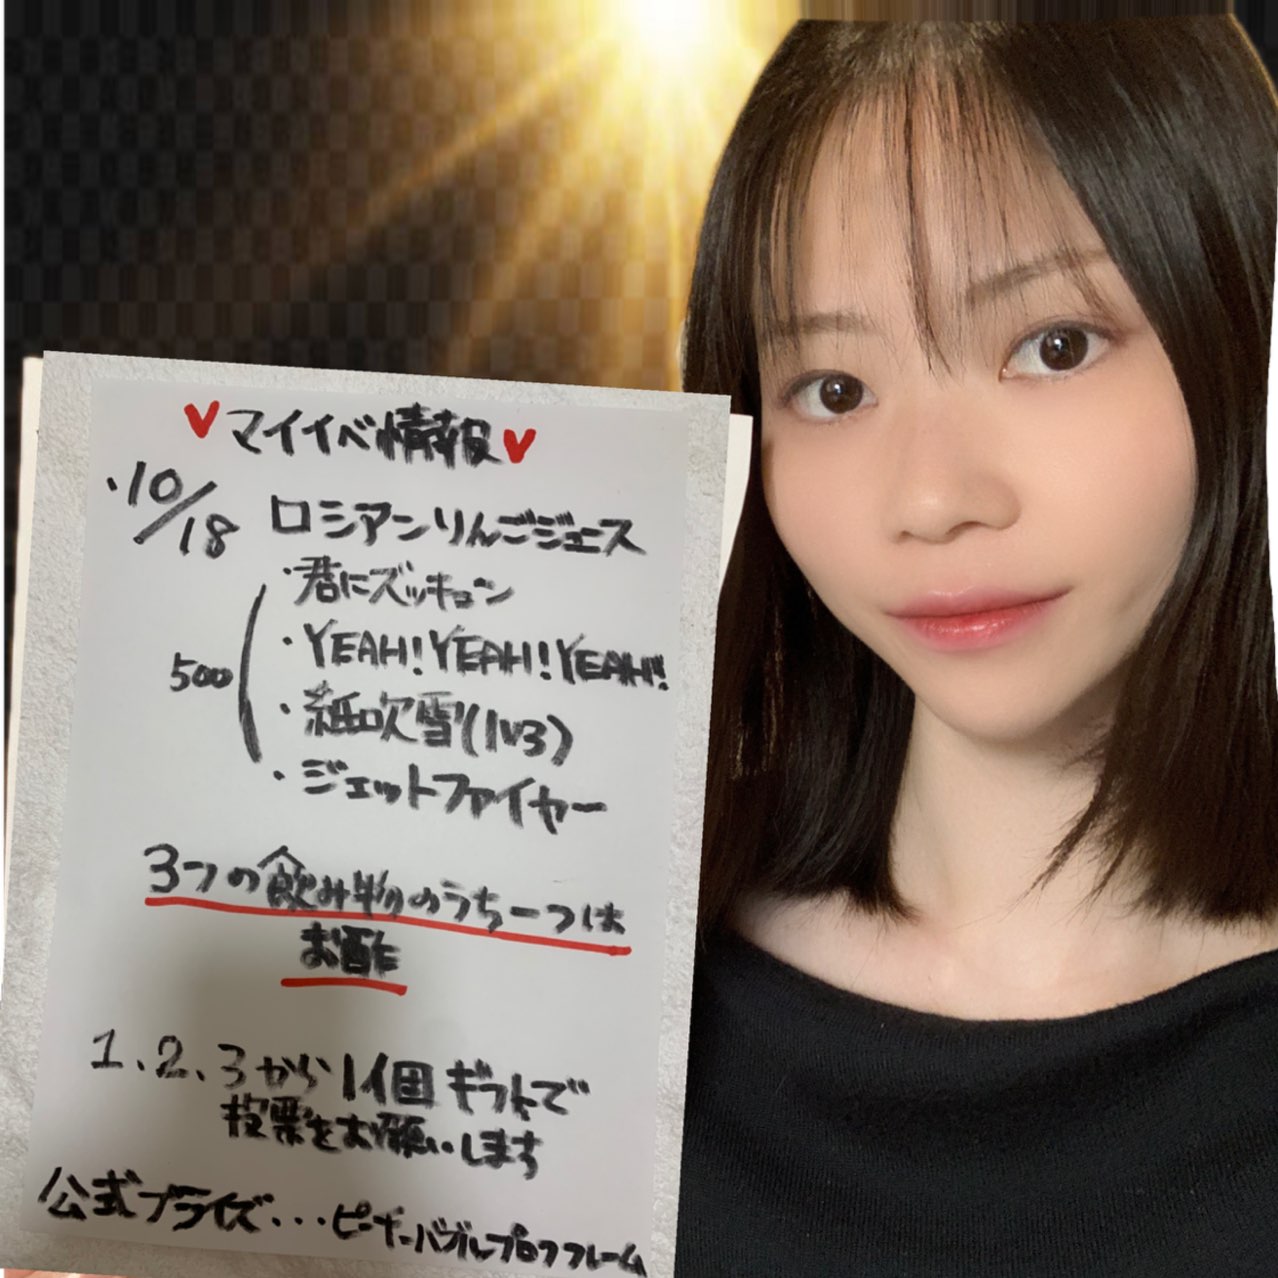 ♥マイイベ情報♥
・10/18 ロシアンりんごジュース
・君にズッキュン
・YEAH!YEAH!YEAH!
500
・紙吹雪(lv3)
・ジェットファイヤー
3つの飲み物のうち一つは
お酢
1、2、3から1個ギフトで
投票をお願いします
公式プライズ・・・ピーチーバブルプロフフレーム